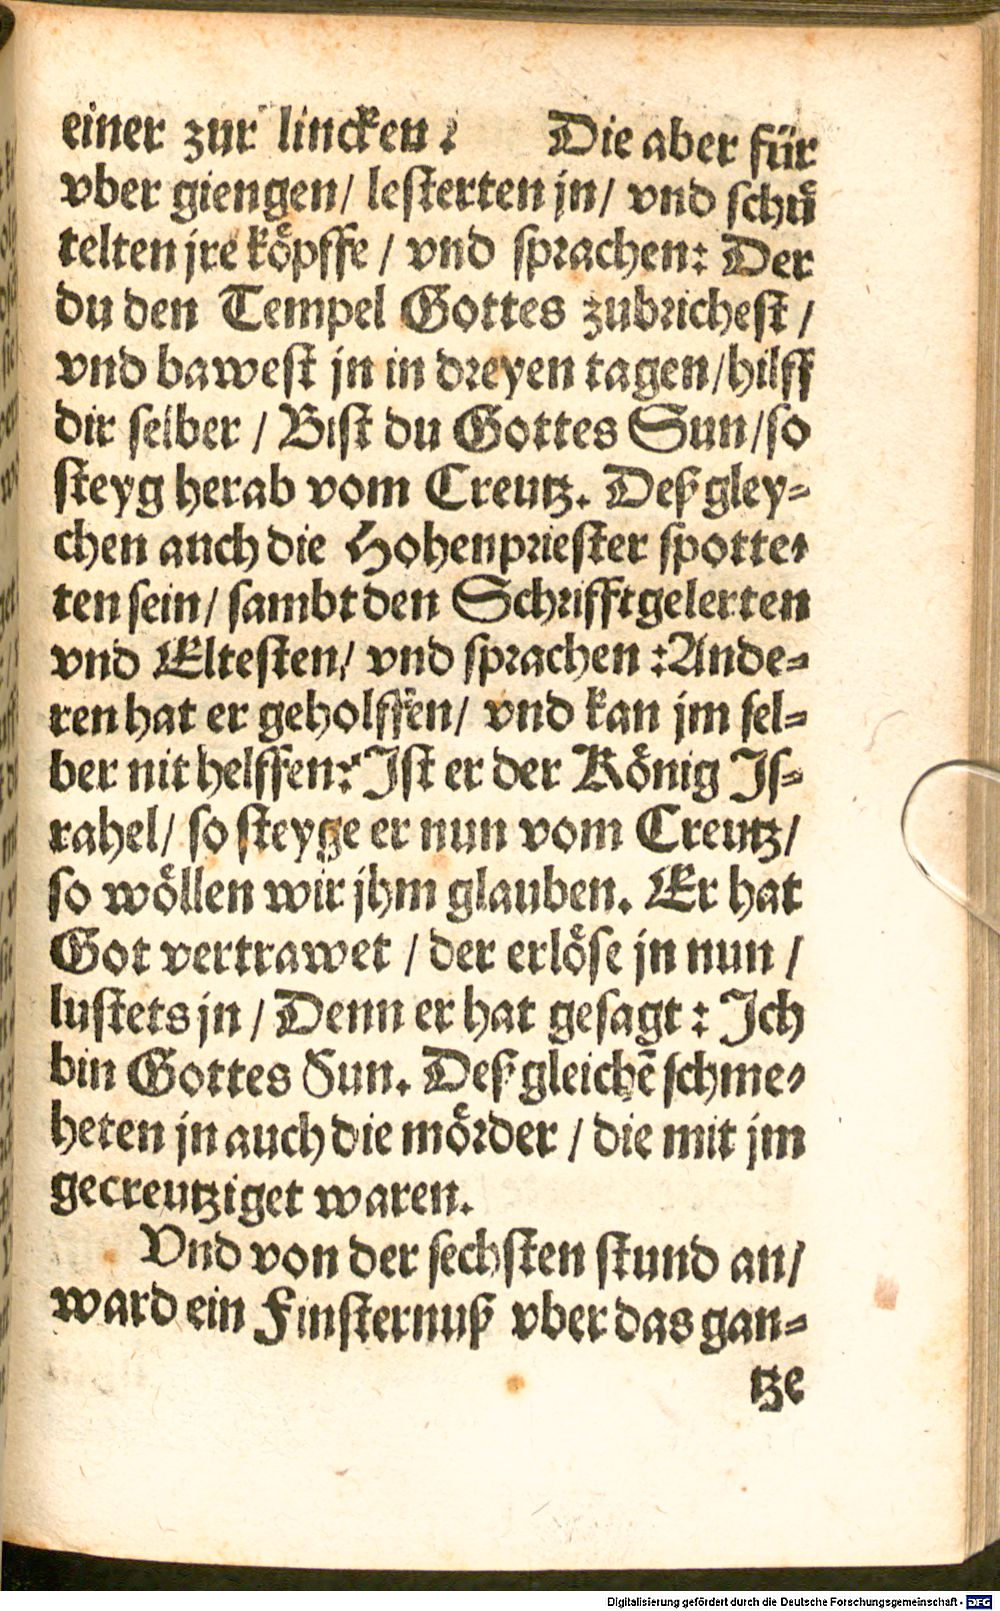 einer zur lincken. Die aber für
vber giengen/ lesterten jn/ vnd schuͤ
telten jre koͤpffe / vnd sprachen: Der
du den Tempel Gottes zubrichest /
vnd bawest jn in dreyen tagen/hilff
dir selber / Bist du Gottes Sun/so
steyg herab vom Creutz. Deßgley-
chen auch die Hohenpriester spotte-
ten sein/ sambt den Schrifftgelerten
vnd Eltesten/ vnd sprachen: Ande-
ren hat er geholffen/ vnd kan jm sel-
ber nit helffen: Ist er der Koͤnig Is-
rahel/ so steyge er nun vom Creutz/
so woͤllen wir jhm glauben. Er hat
Got vertrawet / der erloͤse jn nun /
lustets jn / Denn er hat gesagt: Ich
bin Gottes Sun. Deßgleichē schme-
heten jn auch die moͤrder / die mit jm
gecreutziget waren.
Vnd von der sechsten stund an/
ward ein Finsternuß vber das gan-
tze
Digitalisierung gefördert durch die Deutsche Forschungsgemeinschaft - DFG